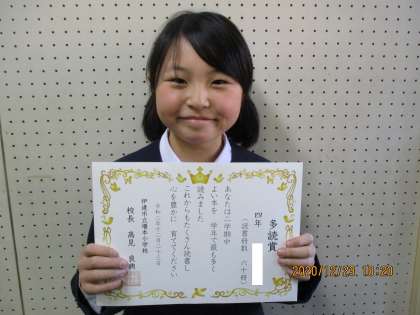 多読賞
四年
(読書冊数 六十冊)
あなたは二学期中
よい本を 学年で最も多く
読みました
これからもたくさん読書し
心を豊かに 育ててください
令和二年十二月二十三日
伊達市立梁本小学校
校長 高見
2020/12/23 10:20